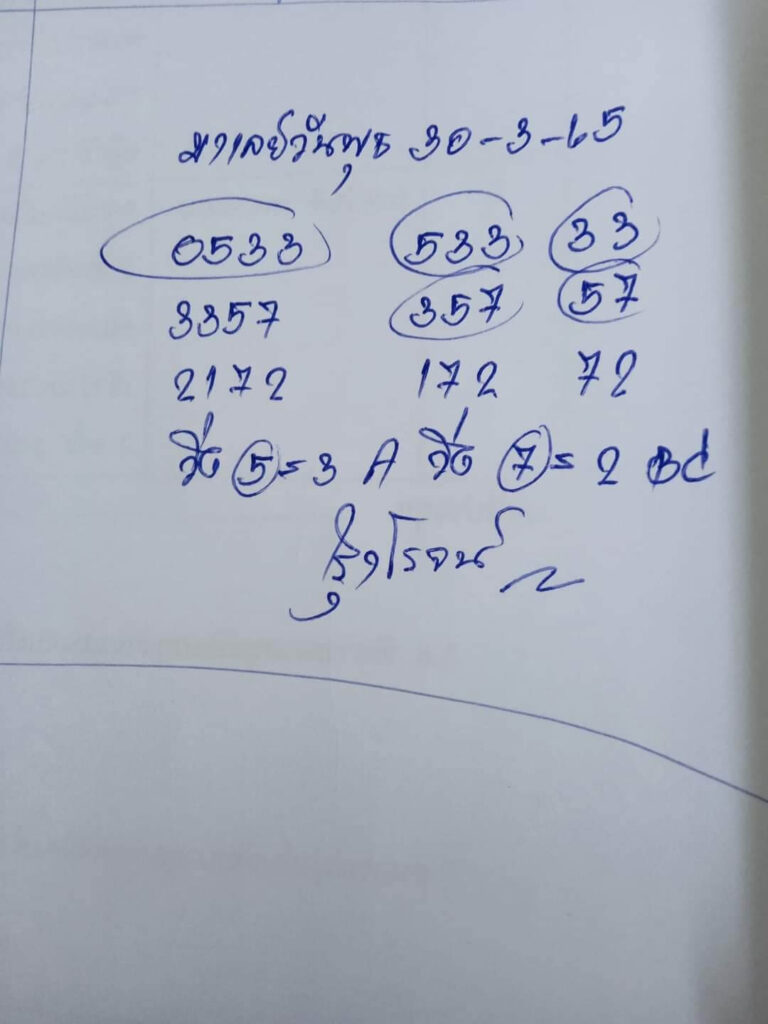 มาเลย์วันพุธ 30-3-65
0533 533 33
3357 357 57
2172 172 72
วิ่ง 5=3 A วิ่ง 7=2 BC
รุ่งโรจน์